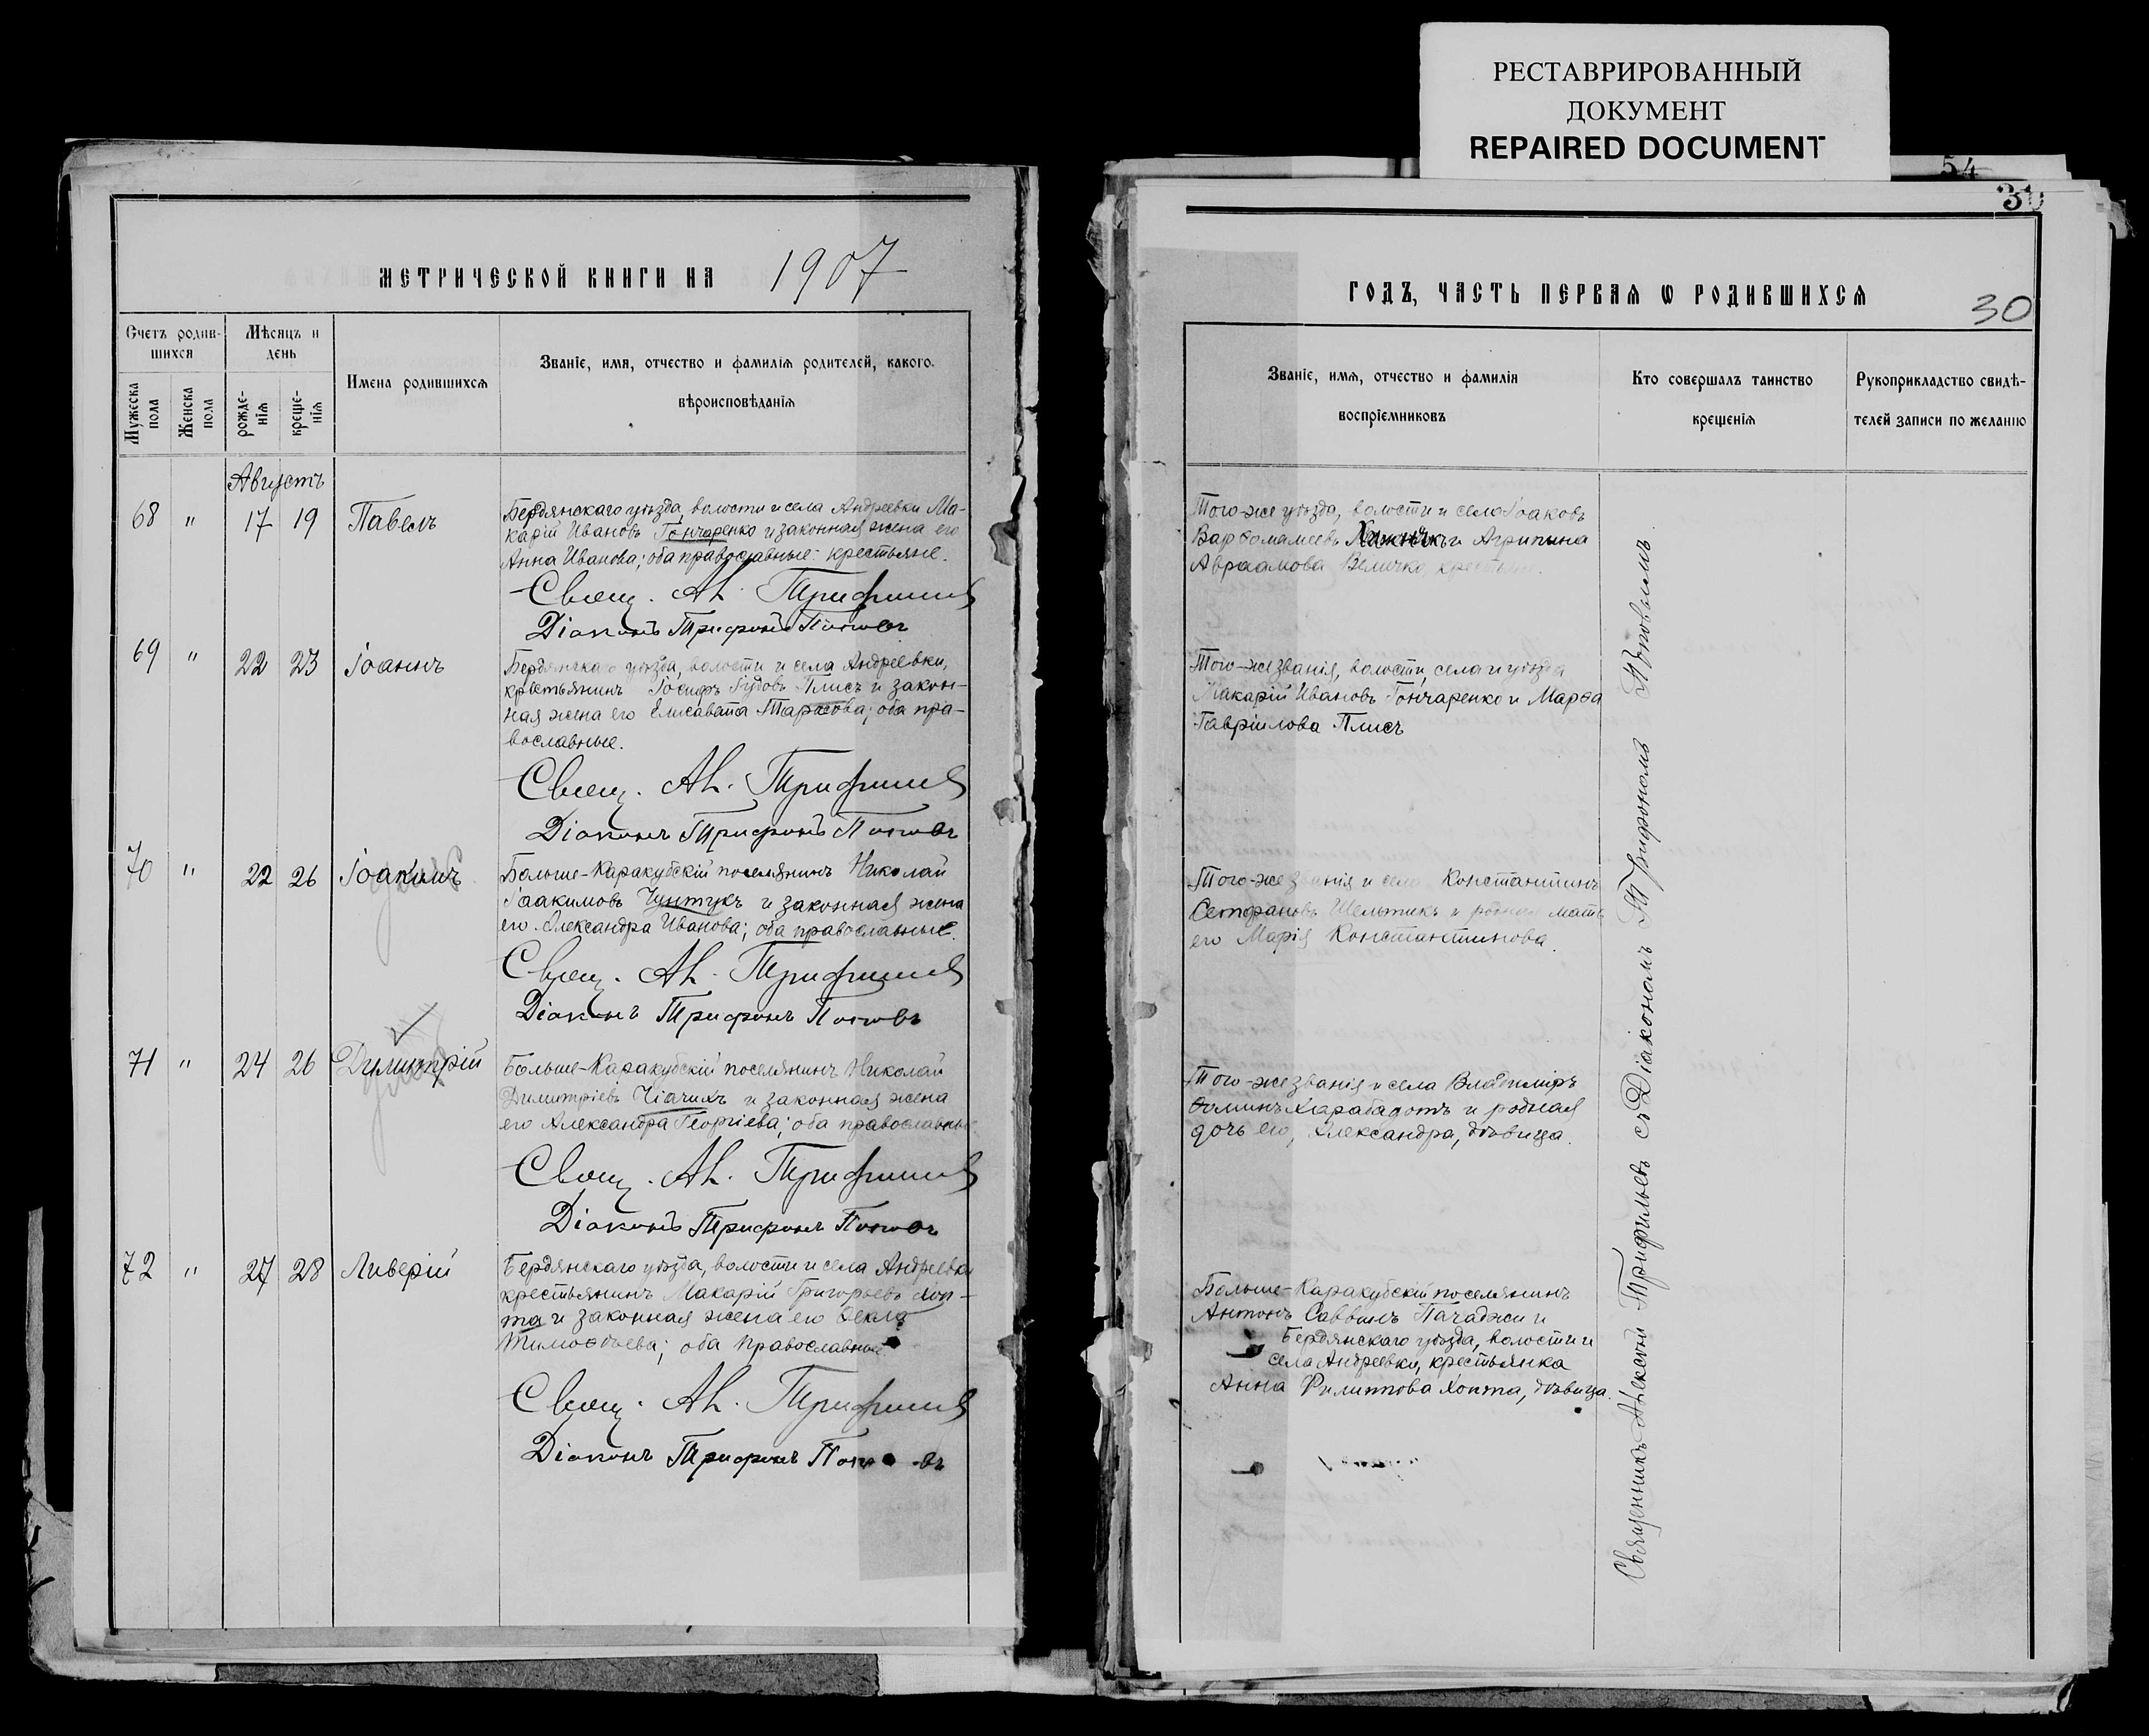 РЕСТАВРИРОВАННЫЙ
ДОКУМЕНТ
REPAIRED DOCUMENT
54
30
МЕТРИЧЕСКОЙ КНИГИ НА 1907
Счетъ родив-
шихся
Мѣсяцъ и
день
Мужеска
пола
Женска
пола
рожде-
нія
креще-
нія
Имена родившихся
Званіе, имя, отчество и фамилія родителей, какого.
вѣроисповѣданія
Августъ
68 " 17 19 Павелъ
Бердянскаго уѣзда, волости и села Андреевки Ма-
карій Ивановъ Гончаренко и законная жена его
Анна Иванова; оба православные - крестьяне.
Свящ. Ал. Трифильев
Діаконъ Трифонъ Поповъ
69 " 22 23 Іоаннъ
Бердянскаго уѣзда, волости и села Андреевки,
крестьянинъ Іосифъ Іудовъ Плисъ и закон-
ная жена его Елисавета Тарасова; оба пра-
вославные.
Свящ. Ал. Трифильев
Діаконъ Трифонъ Поповъ
70 " 22 26 Іоакимъ
Больше-Каракубскій поселянинъ Николай
Іоакимовъ Чунтукъ и законная жена
его Александра Иванова; оба православные.
Свящ. Ал. Трифильев
Діаконъ Трифонъ Поповъ
71 " 24 26 Димитрій
Больше-Каракубскій поселянинъ Николай
Димитріевъ Чіачихъ и законная жена
его Александра Георгіева; оба православные
Свящ. Ал. Трифильев
Діаконъ Трифонъ Поповъ
72 " 27 28 Ливерій
Бердянскаго уѣзда, волости и села Андреевки
крестьянинъ Макарій Григорьевъ Хоп-
та и законная жена его Ѳекла
Тимоѳѣева; оба православные.
Свящ. Ал. Трифильев
Діаконъ Трифонъ Поповъ
ГОДЪ, ЧАСТЬ ПЕРВАЯ Ѡ РОДИВШИХСЯ
30
Званіе, имя, отчество и фамилія
воспріемниковъ
Кто совершалъ таинство
крещенія
Рукоприкладство свидѣ-
телей записи по желанію
Того-же уѣзда, волости и села Іоаковъ
Варѳоламеевъ и Агрипина
Авраамова Величко крестьяне.
Того-же званія, волости, села и уѣзда
Макарій Ивановъ Гончаренко и Марѳа
Гавріилова Плисъ
Того-же званія и села Константинъ
Стефановъ Шельтикъ и родная мать
его Марія Константинова.
Того-же званія и села Владиміръ
Ѳоминъ Харабадотъ и родная
дочь его, Александра, дѣвица.
Больше-Каракубскій поселянинъ
Антонъ Саввинъ Пачаджи и
Бердянскаго уѣзда, волости и
села Андреевки, крестьянка
Анна Филиппова Хопта, дѣвица.
Священникъ Алексій Трифильевъ съ Діакономъ Трифономъ Поповымъ